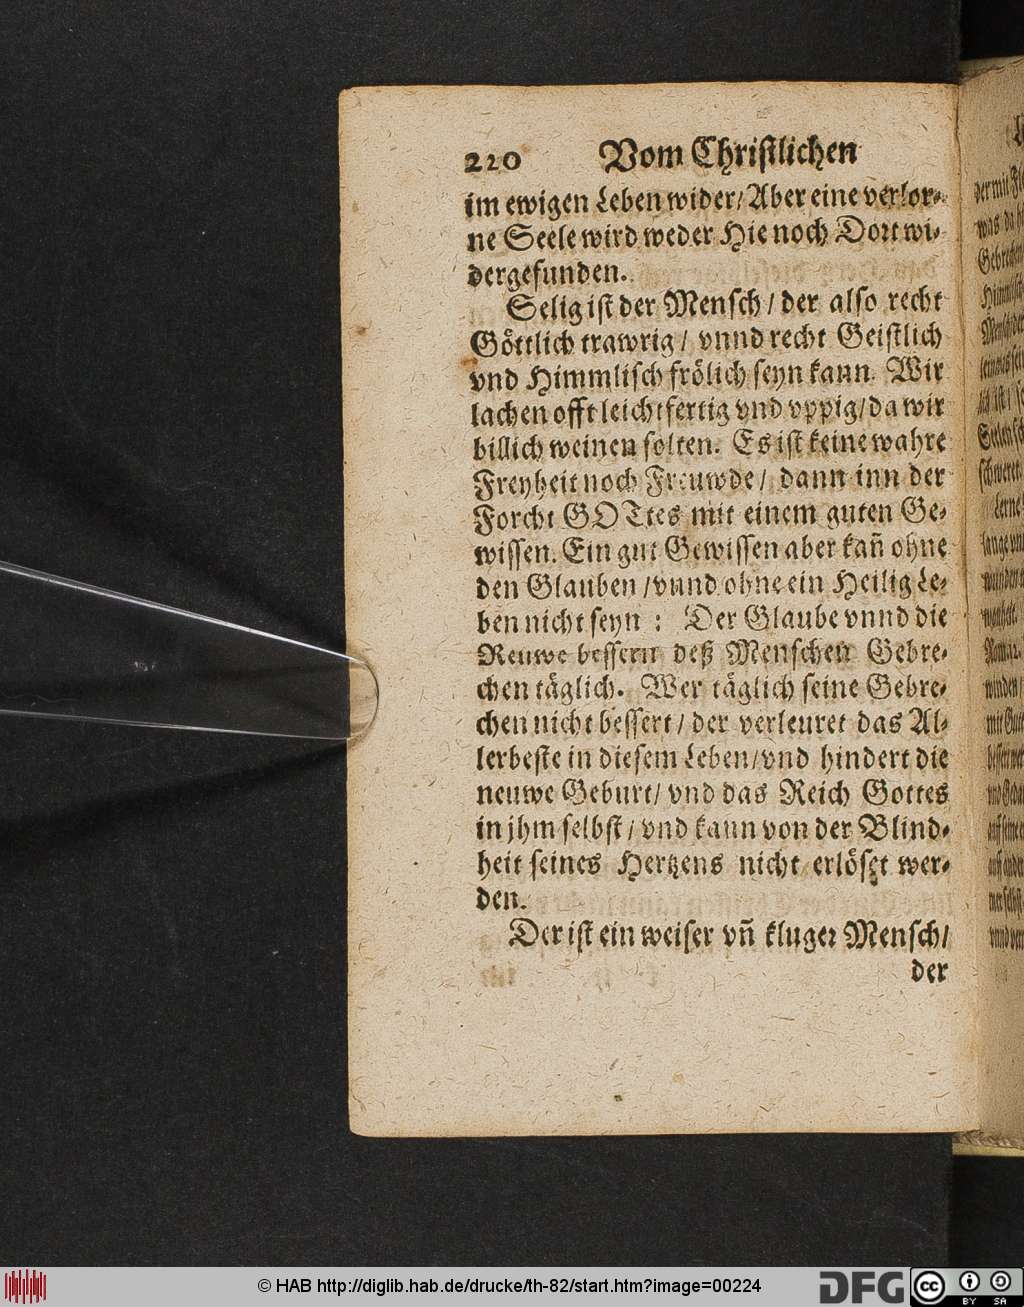 220 Vom Christlichen
im ewigen Leben wider/ Aber eine verlor-
ne Seele wird weder Hie noch Dort wi-
dergefunden.
Selig ist der Mensch/ der also recht
Göttlich trawrig/ vnnd recht Geistlich
vnd Himmlisch frölich seyn kann. Wir
lachen offt leichtfertig vnd vppig/ da wir
billich weinen solten. Es ist keine wahre
Freyheit noch Freuwde/ dann inn der
Forcht GOTtes mit einem guten Ge-
wissen. Ein gut Gewissen aber kañ ohne
den Glauben/ vnnd ohne ein Heilig Le-
ben nicht seyn: Der Glaube vnnd die
Reuwe bessern deß Menschen Gebre-
chen täglich. Wer täglich seine Gebre-
chen nicht bessert/ der verleuret das Al-
lerbeste in diesem Leben/ vnd hindert die
neuwe Geburt/ vnd das Reich Gottes
in jhm selbst/ vnd kann von der Blind-
heit seines Hertzens nicht erlöset wer-
den.
Der ist ein weiser vñ kluger Mensch/
der
© HAB http://diglib.hab.de/drucke/th-82/start.htm?image=00224
DFG
cc BY SA